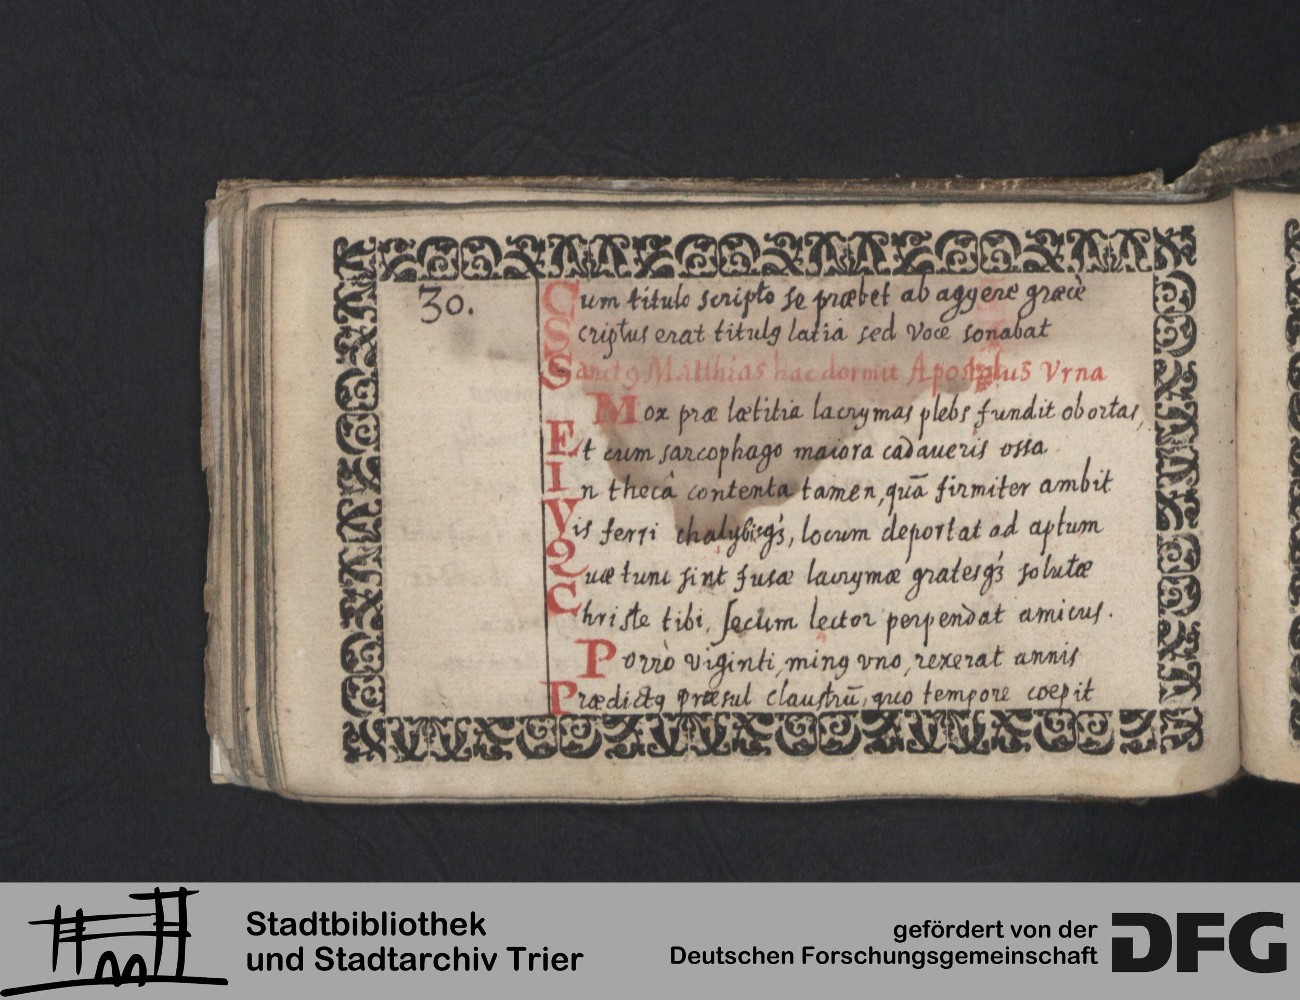 30.
Cum titulo scripto se præbet ab aggere græcè
Scriptus erat titulꝯ latia sed voce sonabat
Sanctꝯ Matthias hac dormit Apostolus Vrna
Mox præ lætitia lacrymas plebs fundit obortas,
Et cum sarcophago maiora cadaueris ossa
In thecâ contenta tamen, quā firmiter ambit
Vis ferri chalybisqꝫ, locum deportat ad aptum
Quæ tunc sint fusæ lacrymæ gratesqꝫ solutæ
Christe tibi, secum lector perpendat amicus.
Porrò viginti, minꝯ vno, rexerat annis
Prædictꝯ præsul claustrū, quo tempore coepit
Stadtbibliothek
und Stadtarchiv Trier
gefördert von der
Deutschen Forschungsgemeinschaft
DFG